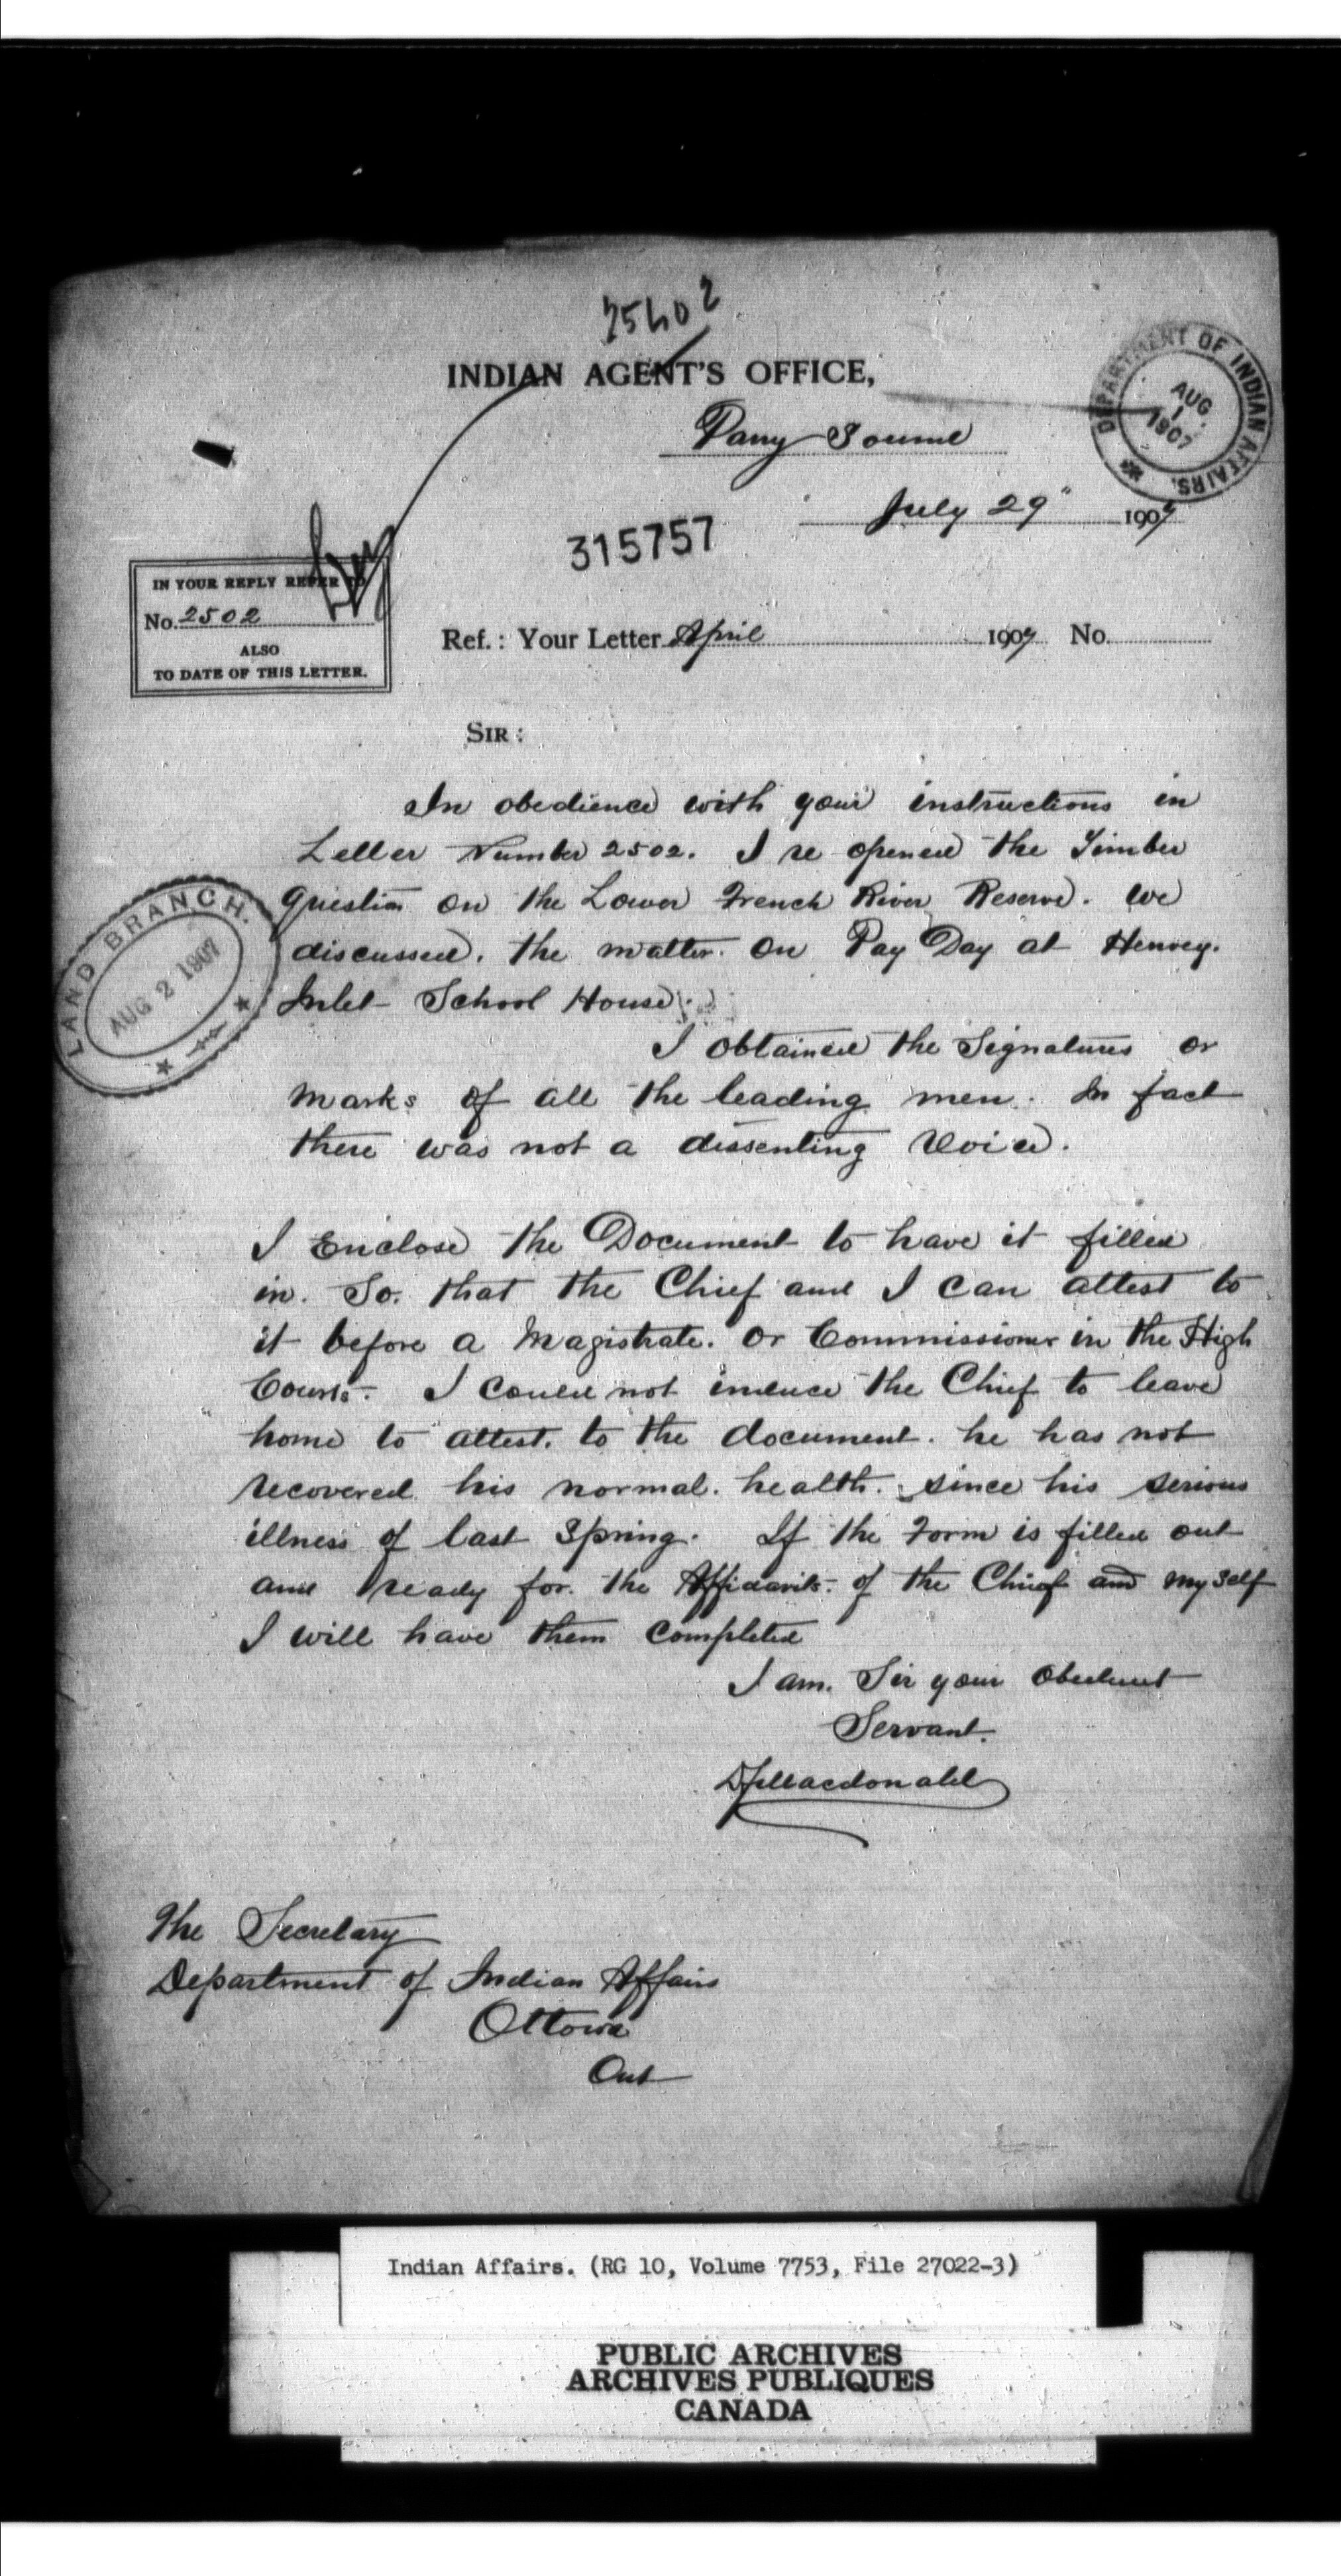 25402
INDIAN AGENT'S OFFICE,
Parry Sound
July 29" 1907
DEPARTMENT OF INDIAN AFFAIRS.
AUG
1
1907
315757
IN YOUR REPLY REFER TO
No. 2502
ALSO
TO DATE OF THIS LETTER.
Ref.: Your Letter April 1907 No.
SIR:
In obedience with your instructions in
Letter Number 2502. I re opened the Timber
question on the Lower French River Reserve. We
discussed. the matter. on Pay Day at Henvey.
Inlet School House.
LAND BRANCH.
AUG 2 1907
I obtained the Signatures or
marks of all the leading men. In fact
there was not a dissenting Voice.
I Enclose the Document to have it filled
in. So. that the Chief and I can attest to
it before a Magistrate. or Commissioner in the High
Courts. I could not induce the Chief to leave
home to attest. to the document. he has not
recovered his normal. health. since his serious
illness of last Spring. If the Form is filled out
and ready for. the Affidavits. of the Chief and my self
I will have them completed
I am. Sir your Obedient
Servant.
Macdonald
The Secretary
Department of Indian Affairs
Ottowa
Ont
Indian Affairs. (RG 10, Volume 7753, File 27022-3)
PUBLIC ARCHIVES
ARCHIVES PUBLIQUES
CANADA